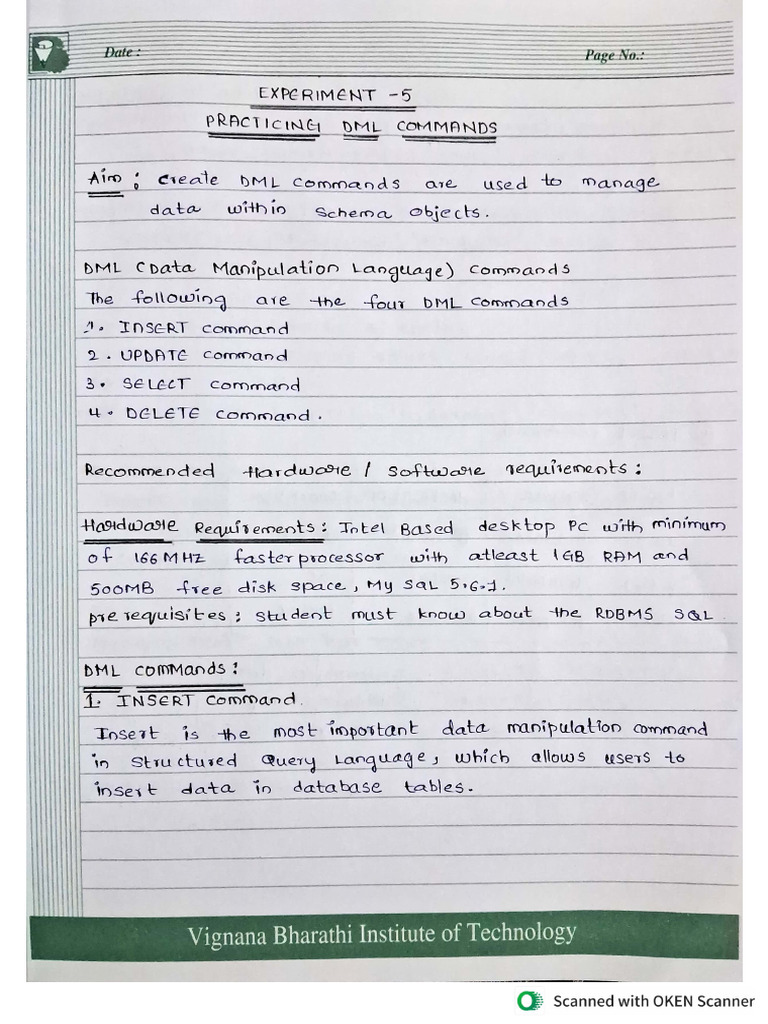 Date :
Page No.:
EXPERIMENT -5
PRACTICING DML COMMANDS
Aim : Create DML commands are used to manage
data within schema objects.
DML (Data Manipulation Language) commands
The following are the four DML commands
1. INSERT command
2. UPDATE command
3. SELECT command
4. DELETE command.
Recommended Hardware / Software requirements :
Hardware Requirements : Intel Based desktop PC with minimum
of 166MHZ faster processor with atleast 1GB RAM and
500MB free disk space, My SQL 5.6.1.
prerequisites : student must know about the RDBMS SQL
DML commands :
1. INSERT command.
Insert is the most important data manipulation command
in structured Query Language, which allows users to
insert data in database tables.
Vignana Bharathi Institute of Technology
Scanned with OKEN Scanner